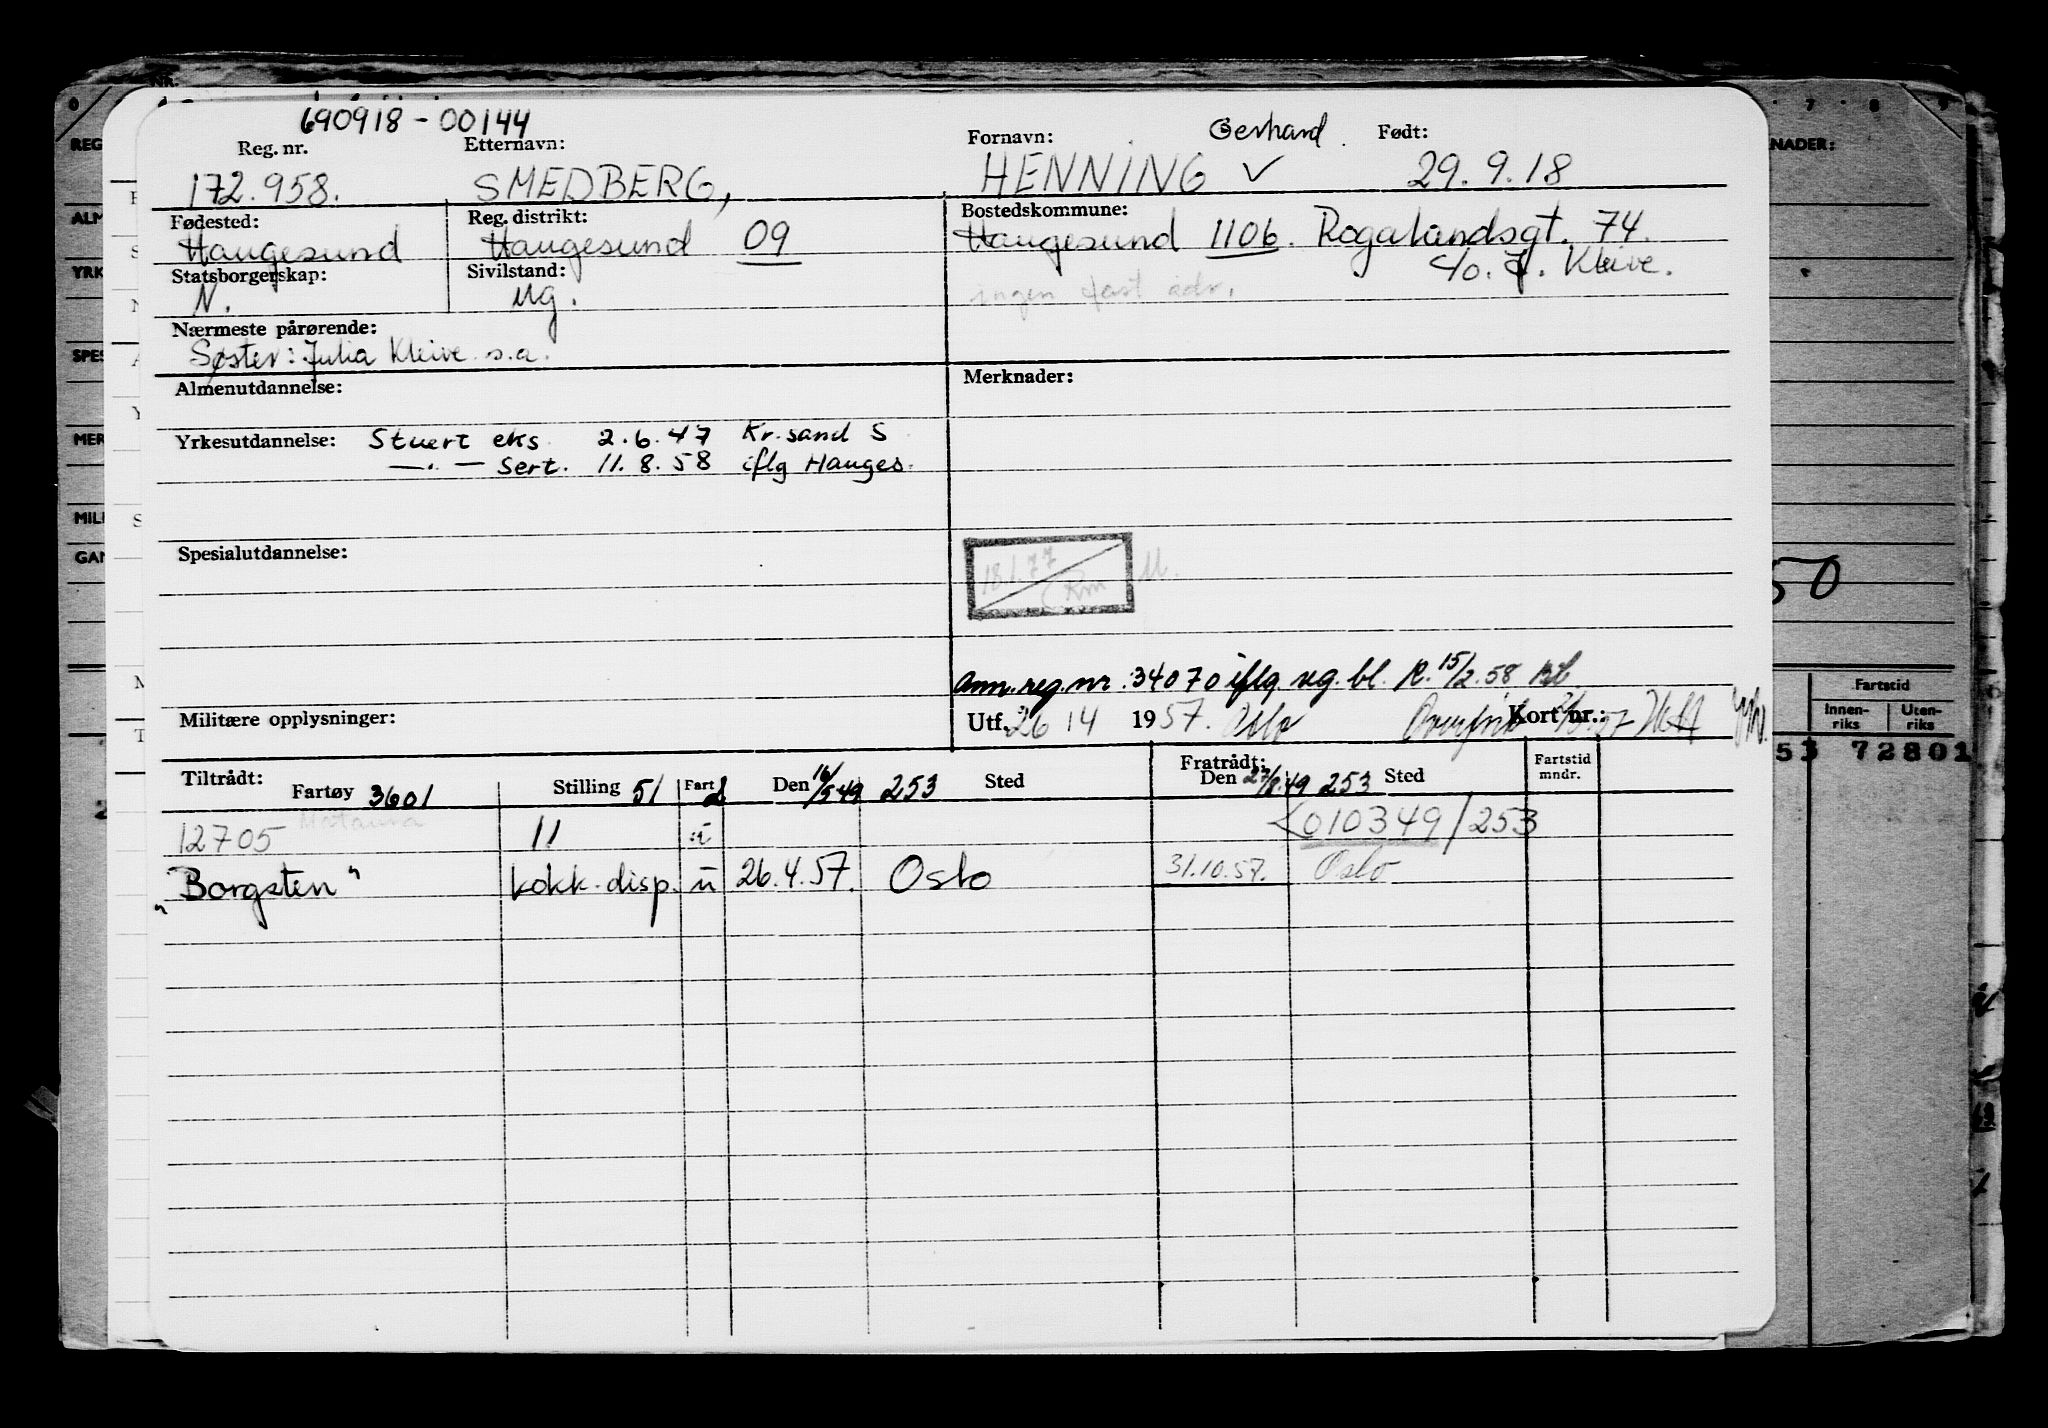 690918-00144
Reg. nr. Etternavn: Fornavn: Gerhard Født:
172.958. SMEDBERG, HENNING ✓ 29.9.18
Fødested: Reg. distrikt: Bostedskommune:
Haugesund Haugesund 09 Haugesund 1106. Rogalandsgt. 74.
c/o. J. Kleive.
Statsborgerskap: Sivilstand:
N. ug. ingen fast adr.
Nærmeste pårørende:
Søster: Julia Kleive s.a.
Almenutdannelse: Merknader:
Yrkesutdannelse: Stuert eks. 2.6.47 Kr.sand S
—.— Sert. 11.8.58 iflg Hauges.
Spesialutdannelse:
18/1.77 M.
Ann.reg.nr. 34070 iflg. ug. bl. R. 15/2.58
Militære opplysninger: Utf. 26/4 1957. Oslo Kort nr.:
Tiltrådt: Fratrådt: Fartstid
mndr.
Fartøy 3601 Stilling 51 Fart Den 16/5 49 253 Sted Den 27/8.49 253 Sted
12705 Mataura 11 <010349/253
"Borgsten" kokk.disp. u 26.4.57. Oslo 31.10.57. Oslo
REG
ALM
YRK
SPES
MER
MILI
GAN
7 8 9
NADER:
50
Fartstid
Innen-
riks
Uten-
riks
53 72801